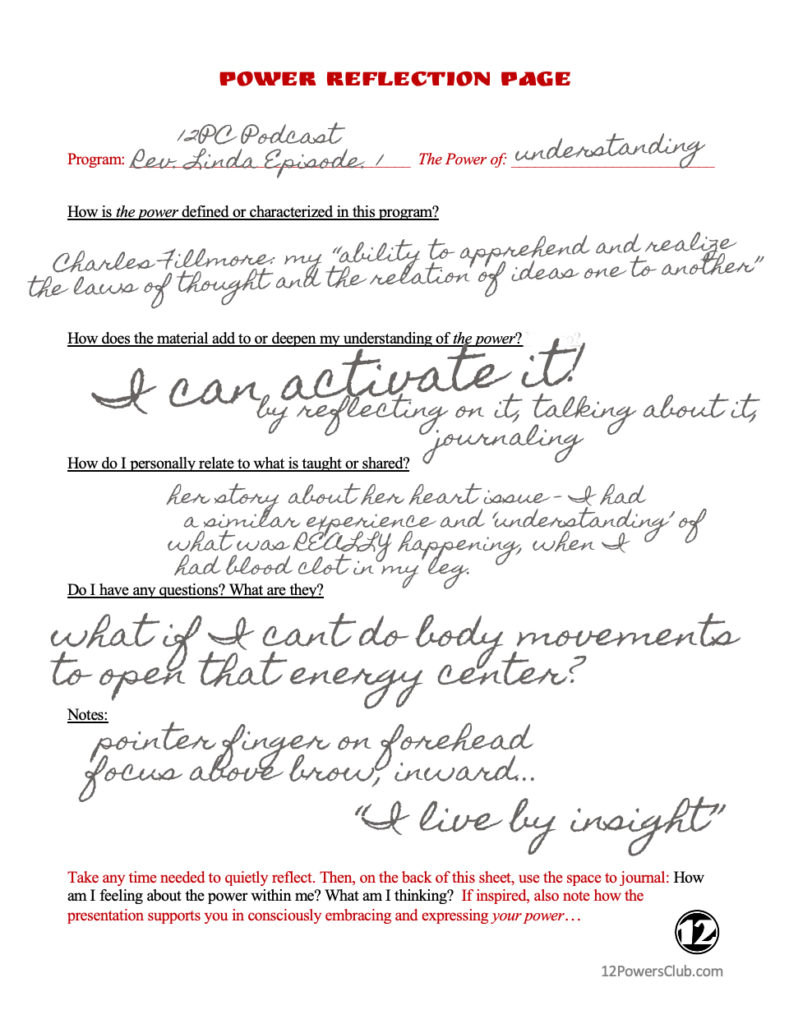 POWER REFLECTION PAGE
12PC Podcast
Program: Rev. Linda Episode 1 The Power of: understanding
How is the power defined or characterized in this program?
Charles Fillmore: my "ability to apprehend and realize
the laws of thought and the relation of ideas one to another"
How does the material add to or deepen my understanding of the power?
I can activate it!
by reflecting on it, talking about it,
journaling
How do I personally relate to what is taught or shared?
her story about her heart issue - I had
a similar experience and 'understanding' of
what was REALLY happening, when I
had blood clot in my leg.
Do I have any questions? What are they?
what if I cant do body movements
to open that energy center?
Notes:
pointer finger on forehead
focus above brow, inward...
"I live by insight"
Take any time needed to quietly reflect. Then, on the back of this sheet, use the space to journal: How
am I feeling about the power within me? What am I thinking? If inspired, also note how the
presentation supports you in consciously embracing and expressing your power…
12
12PowersClub.com